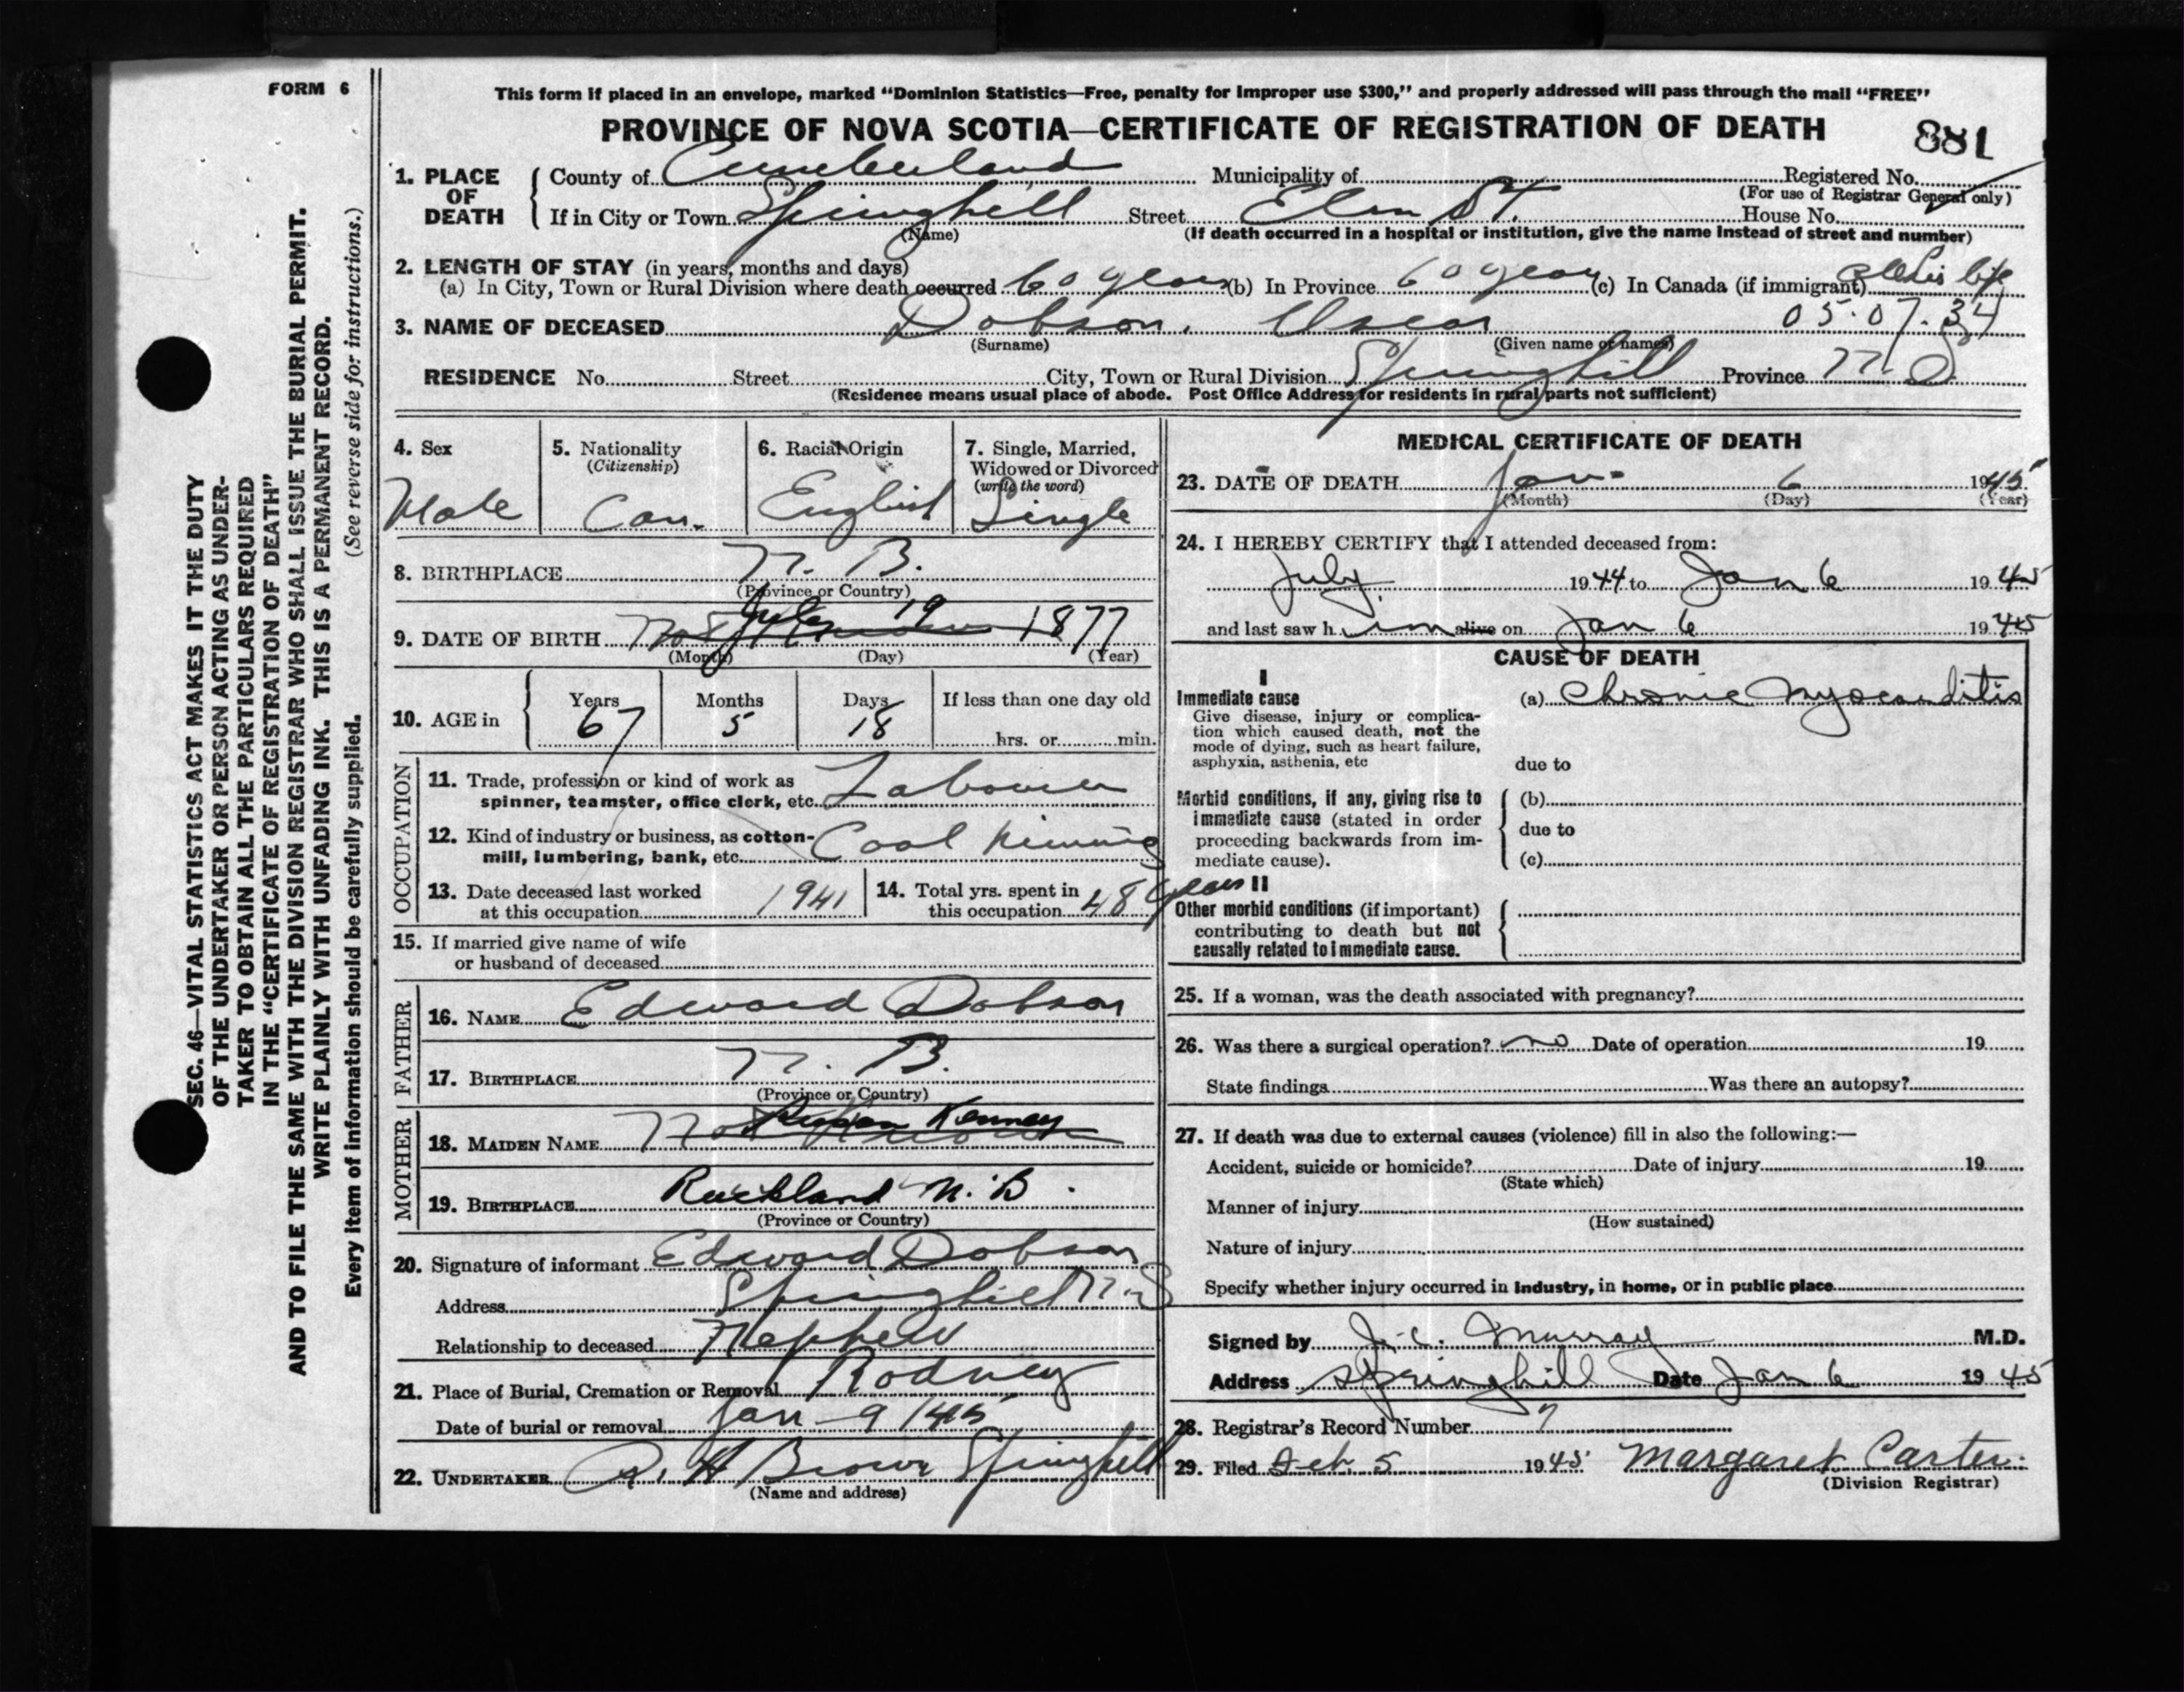 FORM 6
This form if placed in an envelope, marked “Dominion Statistics—Free, penalty for improper use $300,” and properly addressed will pass through the mail “FREE”
PROVINCE OF NOVA SCOTIA—CERTIFICATE OF REGISTRATION OF DEATH
881
1. PLACE OF DEATH
County of Cumberland Municipality of Registered No.
(For use of Registrar General only)
If in City or Town Springhill Street Elm St. House No.
(Name) (If death occurred in a hospital or institution, give the name instead of street and number)
2. LENGTH OF STAY (in years, months and days)
(a) In City, Town or Rural Division where death occurred 60 years (b) In Province 60 years (c) In Canada (if immigrant) all his life
3. NAME OF DECEASED Dobson, Oscar 05.07.34
(Surname) (Given name or names)
RESIDENCE No. Street City, Town or Rural Division Springhill Province N.S.
(Residence means usual place of abode. Post Office Address for residents in rural parts not sufficient)
4. Sex
Male
5. Nationality
(Citizenship)
Can.
6. Racial Origin
English
7. Single, Married,
Widowed or Divorced
(write the word)
Single
8. BIRTHPLACE N. B.
(Province or Country)
9. DATE OF BIRTH Not Known July 19 1877
(Month) (Day) (Year)
10. AGE in
Years Months Days If less than one day old
67 5 18 hrs. or min.
OCCUPATION
11. Trade, profession or kind of work as
spinner, teamster, office clerk, etc. Labourer
12. Kind of industry or business, as cotton-
mill, lumbering, bank, etc. Coal Mining
13. Date deceased last worked
at this occupation 1941
14. Total yrs. spent in
this occupation 48 years
15. If married give name of wife
or husband of deceased
FATHER
16. NAME Edward Dobson
17. BIRTHPLACE N. B.
(Province or Country)
MOTHER
18. MAIDEN NAME Not Known Kenney
19. BIRTHPLACE Rockland N. B.
(Province or Country)
20. Signature of informant Edward Dobson
Address Springhill N.S
Relationship to deceased Nephew
21. Place of Burial, Cremation or Removal Rodney
Date of burial or removal Jan 9 /45
22. UNDERTAKER H Brown Springhill
(Name and address)
MEDICAL CERTIFICATE OF DEATH
23. DATE OF DEATH Jan 6 1945
(Month) (Day) (Year)
24. I HEREBY CERTIFY that I attended deceased from:
July 1944 to Jan 6 1945
and last saw him alive on Jan 6 1945
CAUSE OF DEATH
I
Immediate cause
Give disease, injury or complica-
tion which caused death, not the
mode of dying, such as heart failure,
asphyxia, asthenia, etc
(a) Chronic Myocarditis
due to
Morbid conditions, if any, giving rise to
immediate cause (stated in order
proceeding backwards from im-
mediate cause).
(b)
due to
(c)
II
Other morbid conditions (if important)
contributing to death but not
causally related to immediate cause.
25. If a woman, was the death associated with pregnancy?
26. Was there a surgical operation? no Date of operation 19
State findings Was there an autopsy?
27. If death was due to external causes (violence) fill in also the following:—
Accident, suicide or homicide? Date of injury 19
(State which)
Manner of injury
(How sustained)
Nature of injury
Specify whether injury occurred in industry, in home, or in public place
Signed by J. C. Murray M.D.
Address Springhill Date Jan 6 1945
28. Registrar's Record Number 7
29. Filed Feb. 5 1945 Margaret Carter.
(Division Registrar)
SEC. 46—VITAL STATISTICS ACT MAKES IT THE DUTY
OF THE UNDERTAKER OR PERSON ACTING AS UNDER-
TAKER TO OBTAIN ALL THE PARTICULARS REQUIRED
IN THE “CERTIFICATE OF REGISTRATION OF DEATH”
AND TO FILE THE SAME WITH THE DIVISION REGISTRAR WHO SHALL ISSUE THE BURIAL PERMIT.
WRITE PLAINLY WITH UNFADING INK. THIS IS A PERMANENT RECORD.
Every item of information should be carefully supplied. (See reverse side for instructions.)